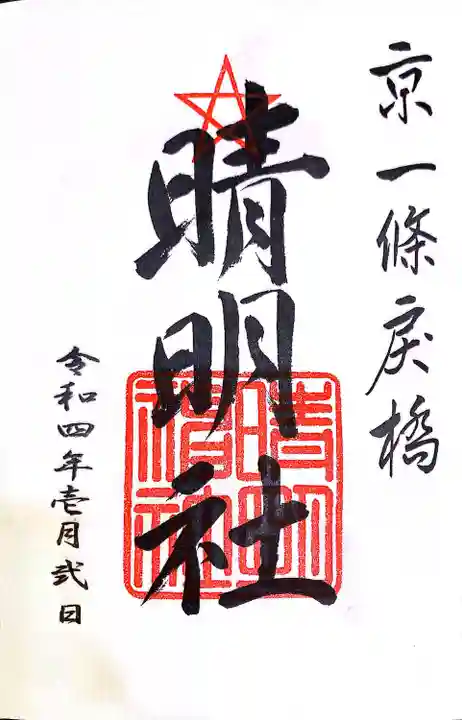 京一條戻橋
晴明社
晴明神社
令和四年壱月弐日